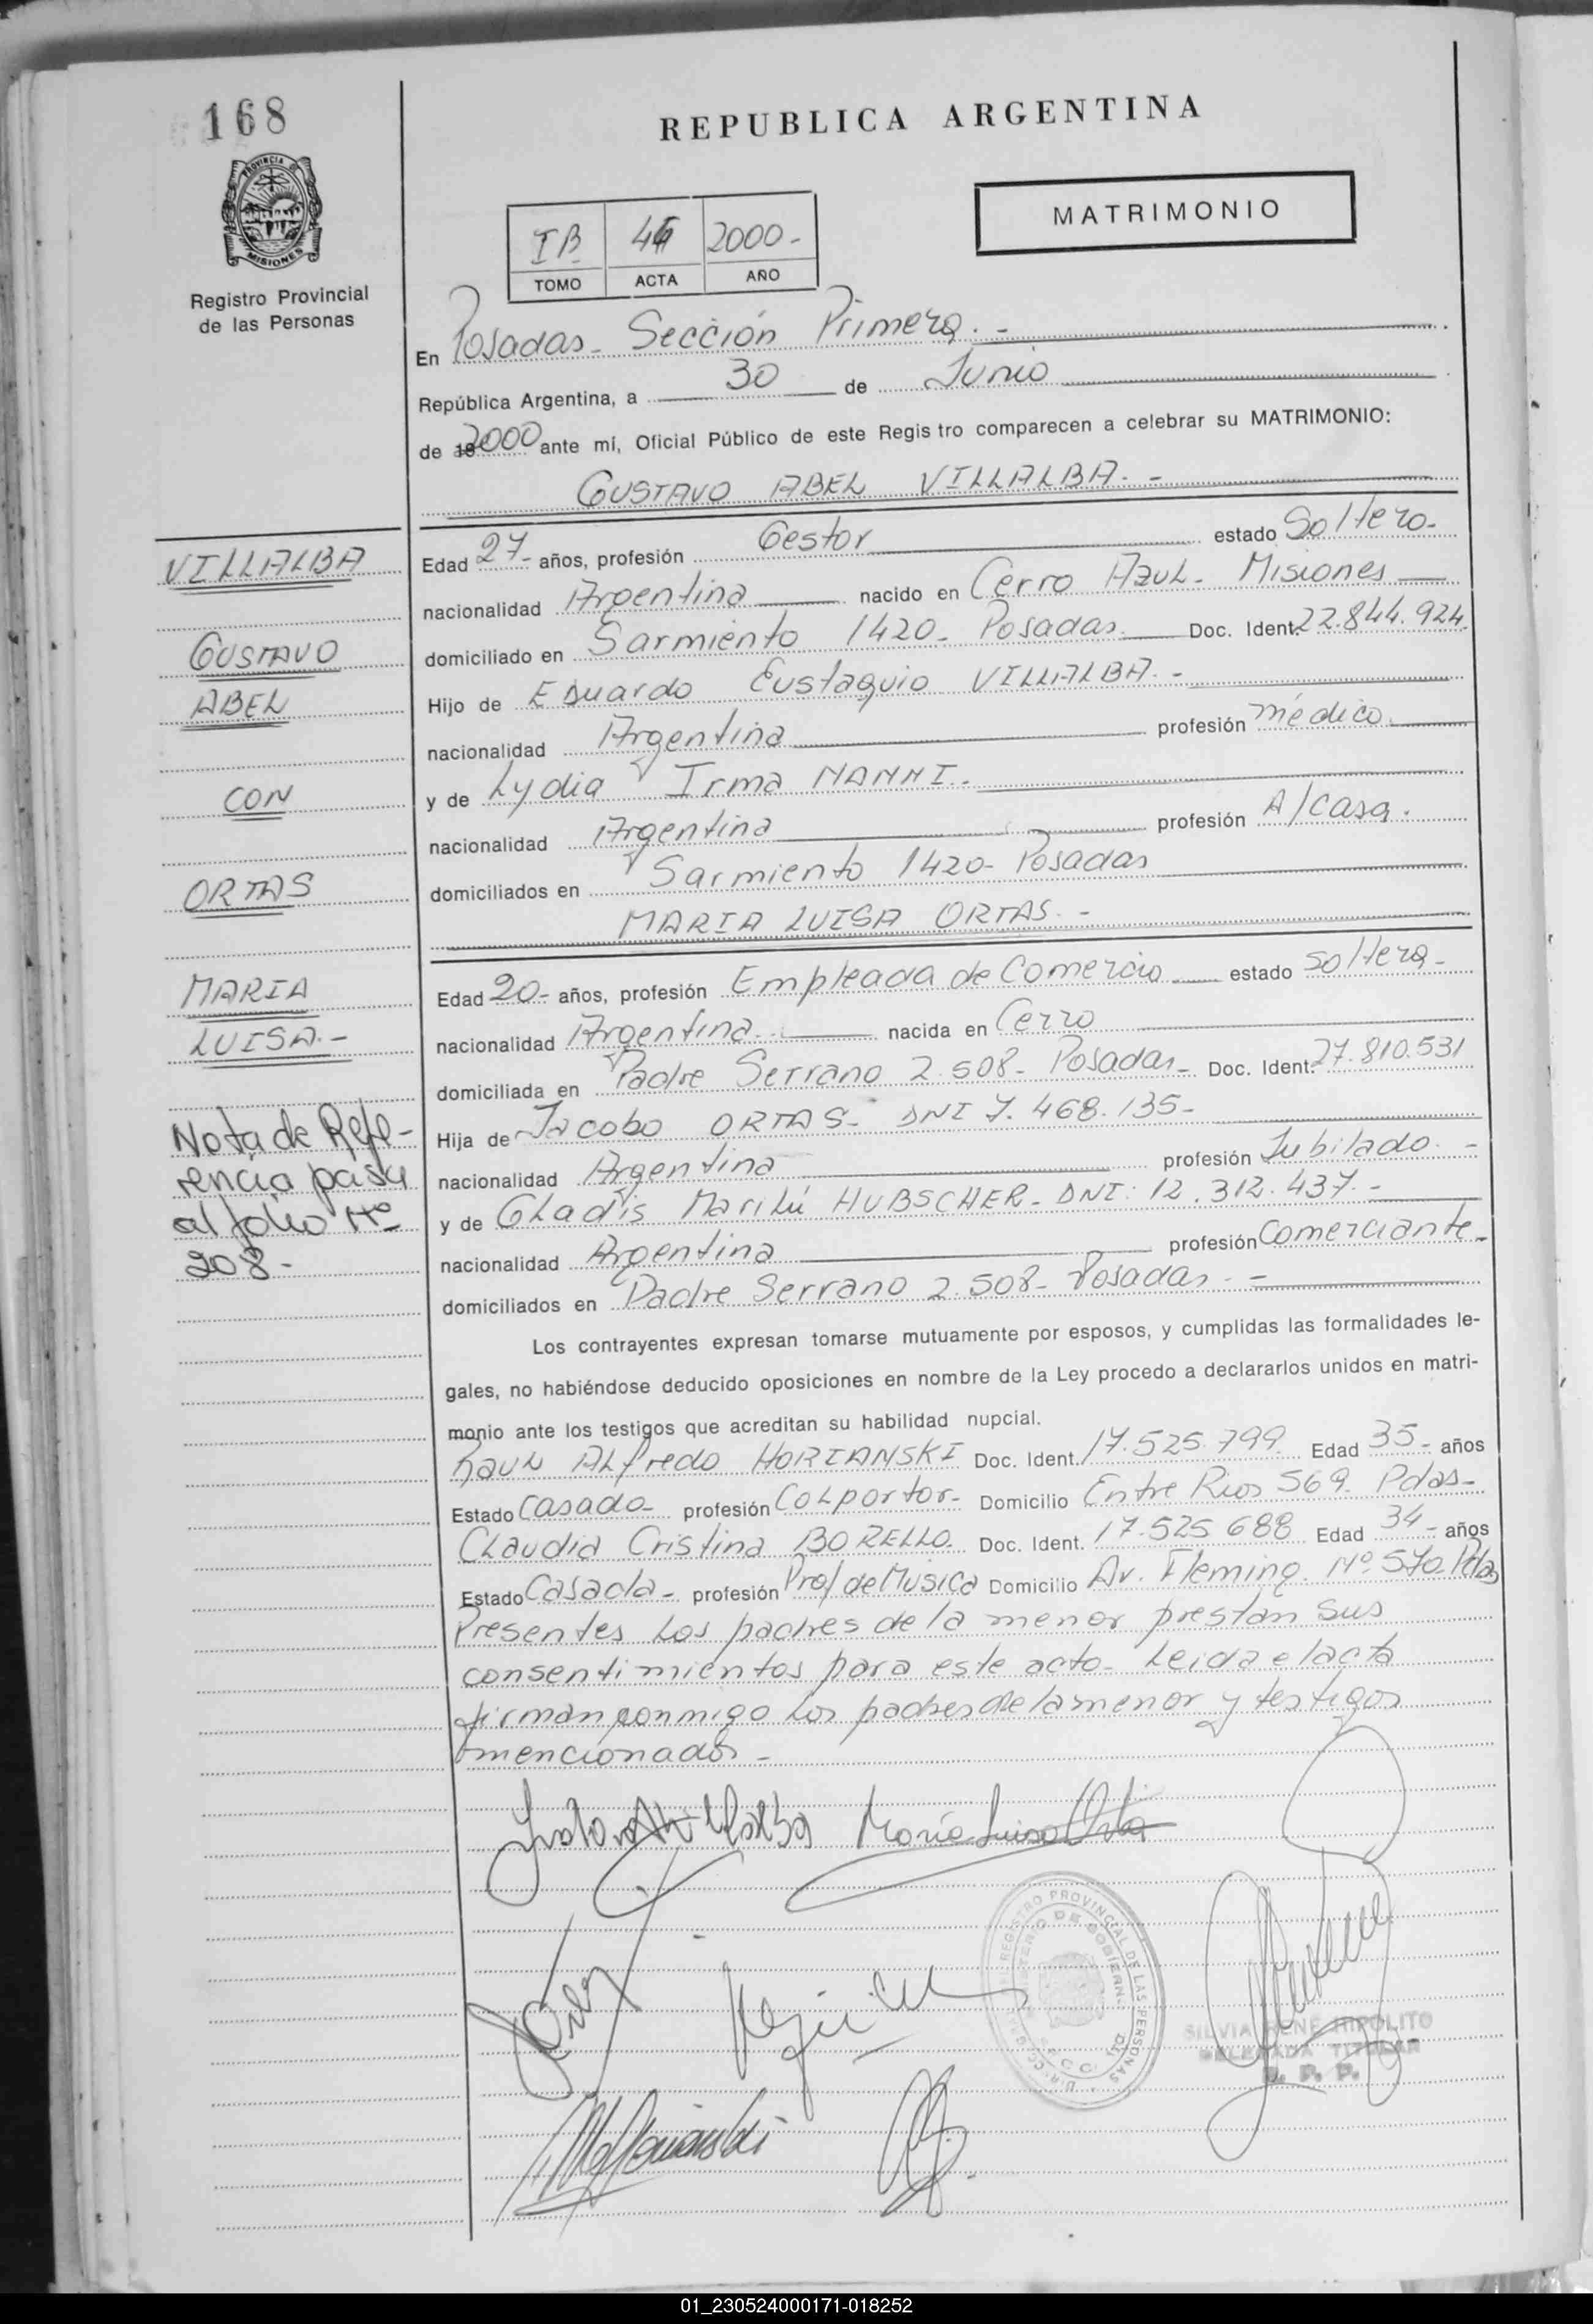 168
REPUBLICA ARGENTINA
PROVINCIA DE MISIONES
Registro Provincial
de las Personas
MATRIMONIO
IB 2000-
TOMO ACTA AÑO
En Posadas- Sección Primera.-
República Argentina, a 30 de Junio
de 2000 ante mí, Oficial Público de este Regis tro comparecen a celebrar su MATRIMONIO:
GUSTAVO ABEL VILLALBA.-
Edad 27- años, profesión Gestor estado Soltero-
nacionalidad Argentina nacido en Cerro Azul- Misiones
domiciliado en Sarmiento 1420- Posadas Doc. Ident. 22.844.924
Hijo de Eduardo Eustaquio VILLALBA.-
nacionalidad Argentina profesión médico.
y de Lydia Irma NANNI.-
nacionalidad Argentina profesión A/Casa.
domiciliados en Sarmiento 1420- Posadas
MARIA LUISA ORTAS.-
Edad 20- años, profesión Empleada de Comercio estado soltera-
nacionalidad Argentina. nacida en Cerro
domiciliada en Padre Serrano 2.508- Posadas- Doc. Ident. 27.810.531
Hija de Jacobo ORTAS- DNI 7.468.135-
nacionalidad Argentina profesión Jubilado.-
y de Gladis Marilú HUBSCHER- DNI: 12.312.437.-
nacionalidad Argentina profesión Comerciante-
domiciliados en Padre Serrano 2.508- Posadas.-
Los contrayentes expresan tomarse mutuamente por esposos, y cumplidas las formalidades le-
gales, no habiéndose deducido oposiciones en nombre de la Ley procedo a declararlos unidos en matri-
monio ante los testigos que acreditan su habilidad nupcial.
Raul Alfredo HORIANSKI Doc. Ident. 17.525.799 Edad 35- años
Estado Casado- profesión Colportor- Domicilio Entre Rios 569- Pdas-
Claudia Cristina BORELLO. Doc. Ident. 17.525.688 Edad 34- años
Estado Casada- profesión Prof de Musica Domicilio Av. Fleming. Nº 570 Pdas
Presentes los padres de la menor prestan sus
consentimientos para este acto- Leida el acta
firman conmigo los padres de la menor y testigos
mencionados-
VILLALBA
GUSTAVO
ABEL
CON
ORTAS
MARIA
LUISA.-
Nota de Refe-
rencia pasa
al folio Nº
208-
Maria Luisa Ortas
REGISTRO PROVINCIAL DE LAS PERSONAS
MINISTERIO DE GOBIERNO
SILVIA RENE HIPOLITO
DELEGADA TITULAR
R. P. P.
01_230524000171-018252